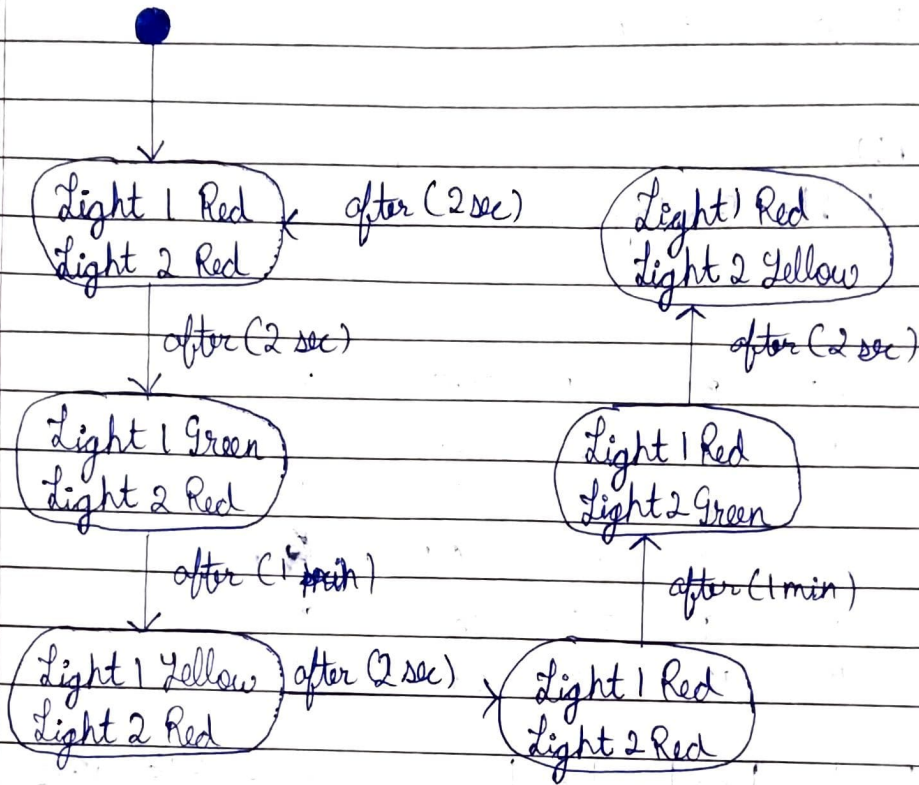 Light 1 Red
Light 2 Red
after (2 sec)
Light 1 Red
Light 2 Yellow
after (2 sec)
after (2 sec)
Light 1 Green
Light 2 Red
Light 1 Red
Light 2 Green
after (1 min)
after (1 min)
Light 1 Yellow
Light 2 Red
after (2 sec)
Light 1 Red
Light 2 Red